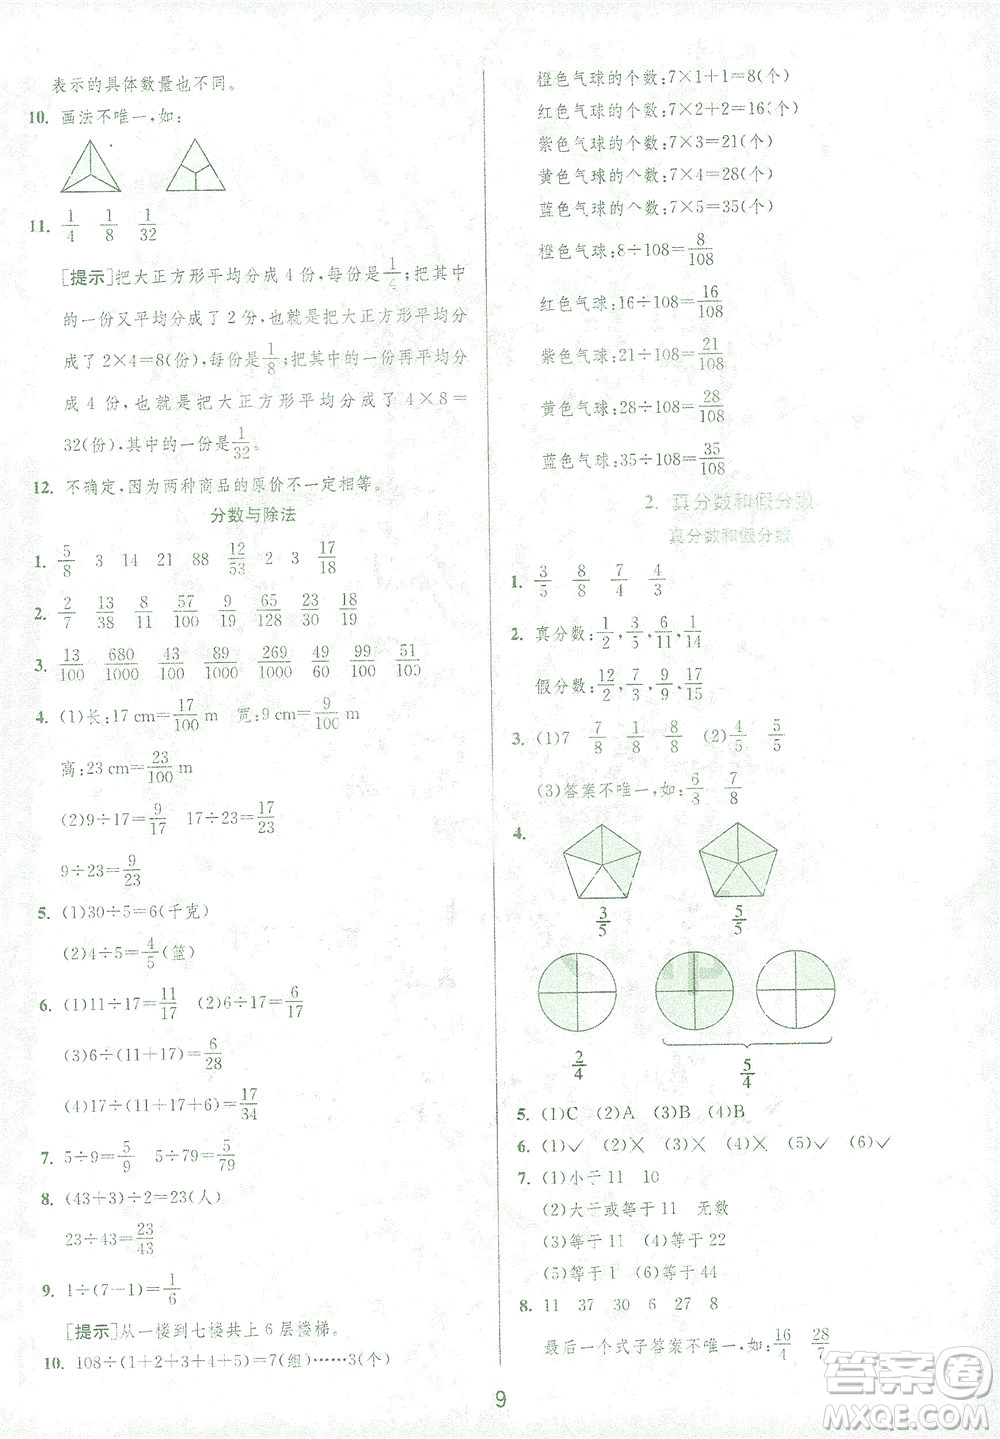 表示的具体数量也不同。
10. 画法不唯一,如:
11. 1/4 1/8 1/32
[提示]把大正方形平均分成 4 份,每份是1/4;把其中
的一份又平均分成了 2 份,也就是把大正方形平均分
成了 2×4=8(份),每份是1/8;把其中的一份再平均分
成 4 份,也就是把大正方形平均分成了 4×8=
32(份),其中的一份是1/32。
12. 不确定,因为两种商品的原价不一定相等。
分数与除法
1. 5/8 3 14 21 88 12/53 2 3 17/18
2. 2/7 13/38 8/11 57/100 9/19 65/128 23/30 18/19
3. 13/100 680/1000 43/100 89/1000 269/1000 49/60 99/100 51/100
4. (1)长:17 cm=17/100 m 宽:9 cm=9/100 m
高:23 cm=23/100 m
(2)9÷17=9/17 17÷23=17/23
9÷23=9/23
5. (1)30÷5=6(千克)
(2)4÷5=4/5(篮)
6. (1)11÷17=11/17 (2)6÷17=6/17
(3)6÷(11+17)=6/28
(4)17÷(11+17+6)=17/34
7. 5÷9=5/9 5÷79=5/79
8. (43+3)÷2=23(人)
23÷43=23/43
9. 1÷(7-1)=1/6
[提示]从一楼到七楼共上 6 层楼梯。
10. 108÷(1+2+3+4+5)=7(组)……3(个)
橙色气球的个数:7×1+1=8(个)
红色气球的个数:7×2+2=16(个)
紫色气球的个数:7×3=21(个)
黄色气球的个数:7×4=28(个)
蓝色气球的个数:7×5=35(个)
橙色气球:8÷108=8/108
红色气球:16÷108=16/108
紫色气球:21÷108=21/108
黄色气球:28÷108=28/108
蓝色气球:35÷108=35/108
2. 真分数和假分数
真分数和假分数
1. 3/5 8/8 7/4 4/3
2. 真分数:1/2,3/5,6/11,1/14
假分数:12/2,7/3,9/9,17/12
3. (1)7 7/8 1/8 8/8 (2)4/5 5/5
(3)答案不唯一,如:6/8 7/8
4.
3/5 5/5
2/4 5/4
5. (1)C (2)A (3)B (4)B
6. (1)✓ (2)× (3)× (4)× (5)✓ (6)✓
7. (1)小于 11 10
(2)大于或等于 11 无数
(3)等于 11 (4)等于 22
(5)等于 1 (6)等于 44
8. 11 37 30 6 27 8
最后一个式子答案不唯一,如:16/4 28/7
9
答案圈
MXQE.COM